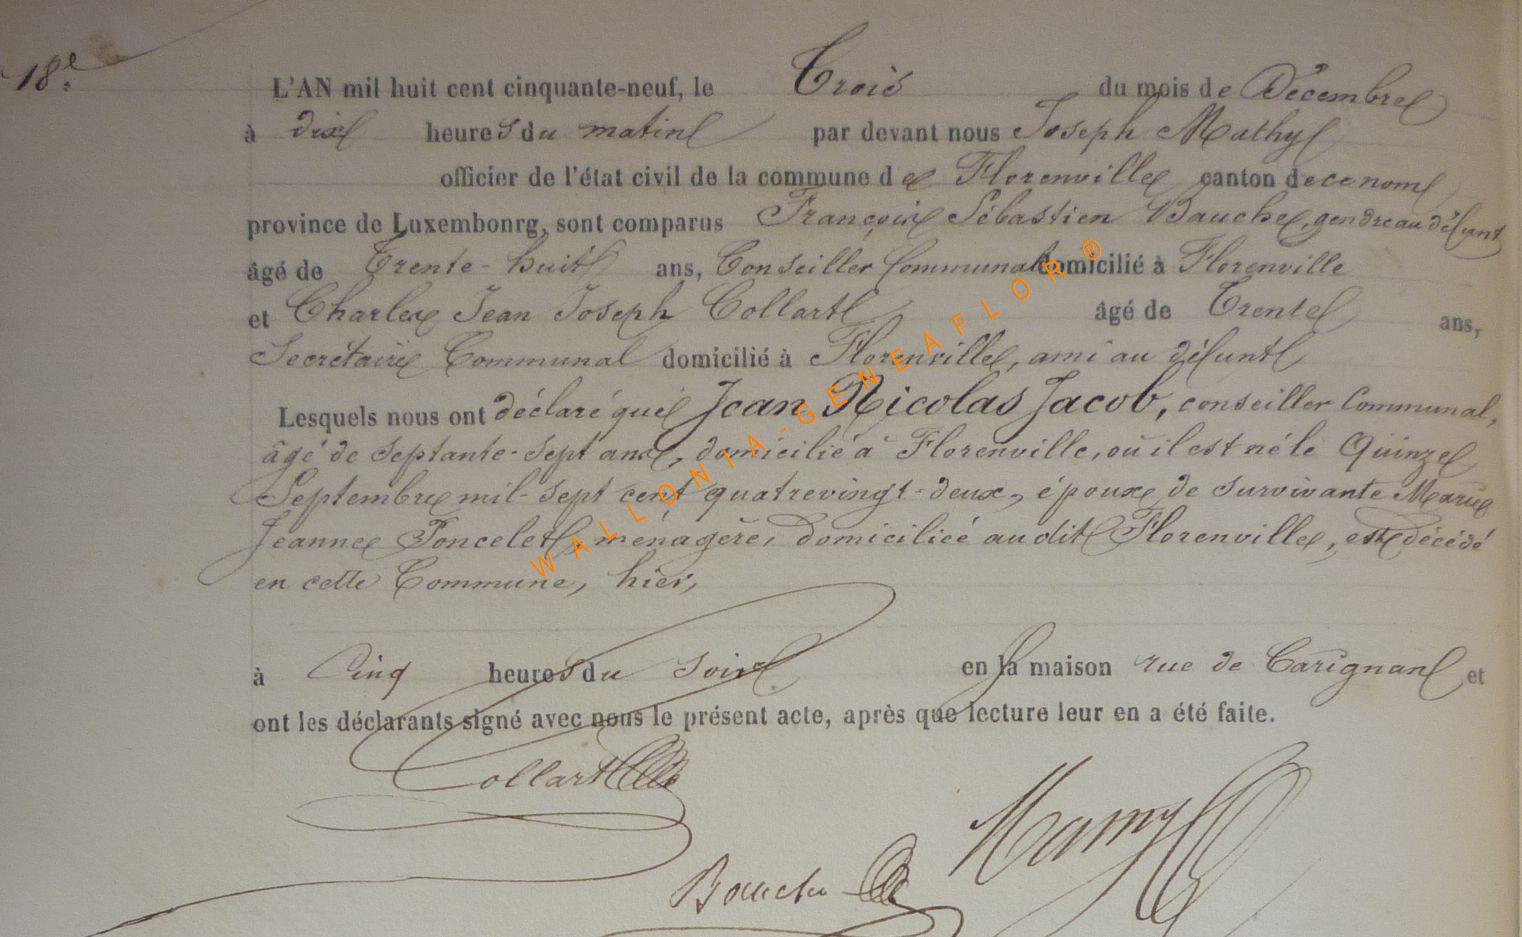 18e.
L'AN mil huit cent cinquante-neuf, le Trois du mois de Décembre
à dix heures du matin par devant nous Joseph Mathy
officier de l'état civil de la commune de Florenville canton de ce nom
province de Luxembonrg, sont comparus François Sébastien Bauche, gendre au défunt
âgé de Trente-huit ans, Conseiller Communal domicilié à Florenville
et Charles Jean Joseph Collart âgé de Trente ans,
Secrétaire Communal domicilié à Florenville, ami au défunt
Lesquels nous ont déclaré que Jean Nicolas Jacob, conseiller Communal,
âgé de septante-sept ans, domicilié à Florenville, où il est né le Quinze
Septembre mil-sept cent quatrevingt-deux, époux de survivante Marie
Jeanne Poncelet, ménagère, domiciliée audit Florenville, est décédé
en cette Commune, hier,
à Cinq heures du soir en la maison rue de Carignan et
ont les déclarants signé avec nous le présent acte, après que lecture leur en a été faite.
Collart
Mathy
Bauche
WALLONIA-GENEAFLOR®